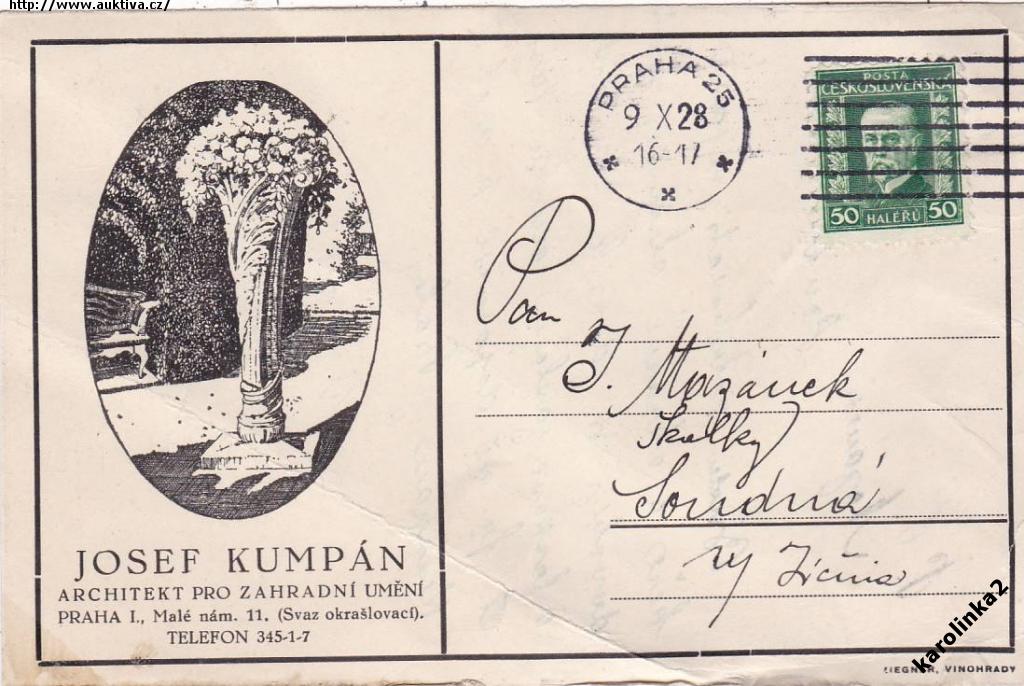 http://www.auktiva.cz/
PRAHA 25
9 X 28
16-17
POSTA
ČESKOSLOVENSKÁ
50 HALÉŘŮ 50
Pan
J. Mazánek
Skalky
JOSEF KUMPÁN
ARCHITEKT PRO ZAHRADNÍ UMĚNÍ
PRAHA I., Malé nám. 11. (Svaz okrašlovací).
TELEFON 345-1-7
VINOHRADY
karolinka2